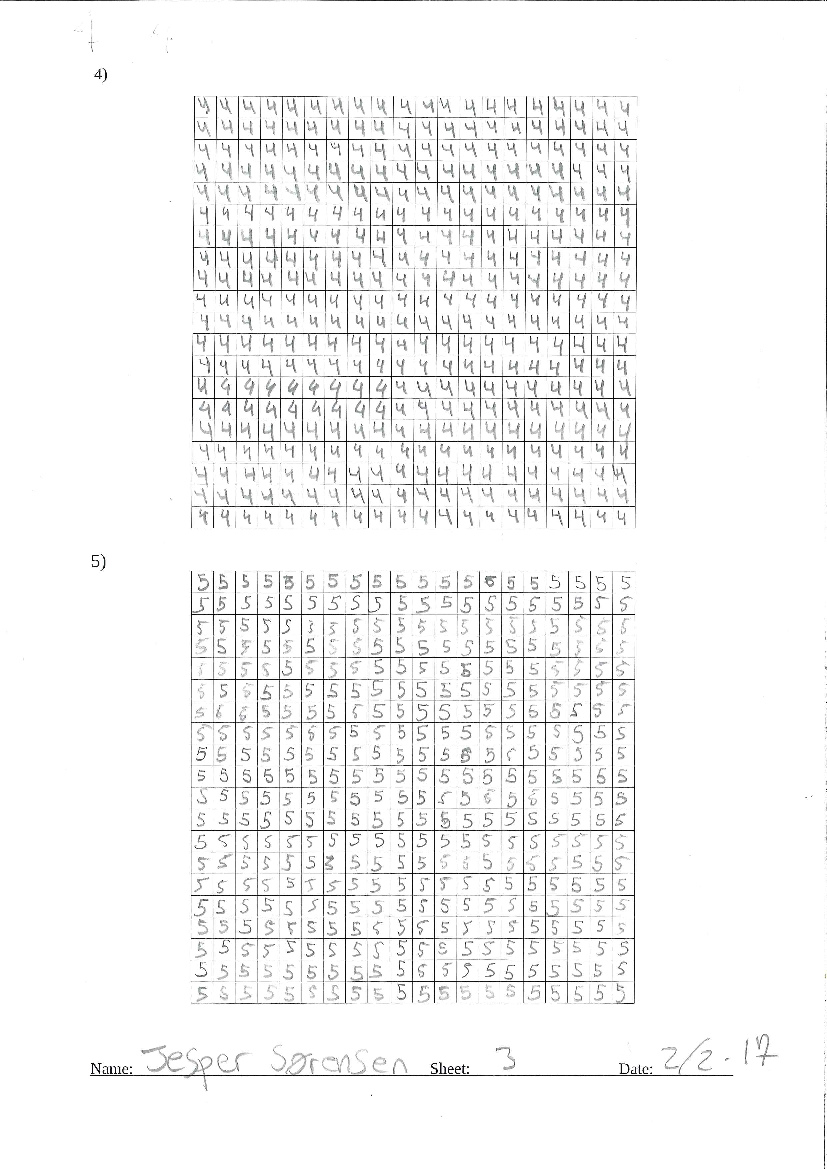 4)
4 4 4 4 4 4 4 4 4 4 4 4 4 4 4 4 4 4 4 4
4 4 4 4 4 4 4 4 4 4 4 4 4 4 4 4 4 4 4 4
4 4 4 4 4 4 4 4 4 4 4 4 4 4 4 4 4 4 4 4
4 4 4 4 4 4 4 4 4 4 4 4 4 4 4 4 4 4 4 4
4 4 4 4 4 4 4 4 4 4 4 4 4 4 4 4 4 4 4 4
4 4 4 4 4 4 4 4 4 4 4 4 4 4 4 4 4 4 4 4
4 4 4 4 4 4 4 4 4 4 4 4 4 4 4 4 4 4 4 4
4 4 4 4 4 4 4 4 4 4 4 4 4 4 4 4 4 4 4 4
4 4 4 4 4 4 4 4 4 4 4 4 4 4 4 4 4 4 4 4
4 4 4 4 4 4 4 4 4 4 4 4 4 4 4 4 4 4 4 4
4 4 4 4 4 4 4 4 4 4 4 4 4 4 4 4 4 4 4 4
4 4 4 4 4 4 4 4 4 4 4 4 4 4 4 4 4 4 4 4
4 4 4 4 4 4 4 4 4 4 4 4 4 4 4 4 4 4 4 4
4 4 4 4 4 4 4 4 4 4 4 4 4 4 4 4 4 4 4 4
4 4 4 4 4 4 4 4 4 4 4 4 4 4 4 4 4 4 4 4
4 4 4 4 4 4 4 4 4 4 4 4 4 4 4 4 4 4 4 4
4 4 4 4 4 4 4 4 4 4 4 4 4 4 4 4 4 4 4 4
4 4 4 4 4 4 4 4 4 4 4 4 4 4 4 4 4 4 4 4
4 4 4 4 4 4 4 4 4 4 4 4 4 4 4 4 4 4 4 4
4 4 4 4 4 4 4 4 4 4 4 4 4 4 4 4 4 4 4 4
5)
5 5 5 5 5 5 5 5 5 5 5 5 5 5 5 5 5 5 5 5
5 5 5 5 5 5 5 5 5 5 5 5 5 5 5 5 5 5 5 5
5 5 5 5 5 5 5 5 5 5 5 5 5 5 5 5 5 5 5 5
5 5 5 5 5 5 5 5 5 5 5 5 5 5 5 5 5 5 5 5
5 5 5 5 5 5 5 5 5 5 5 5 5 5 5 5 5 5 5 5
5 5 5 5 5 5 5 5 5 5 5 5 5 5 5 5 5 5 5 5
5 5 5 5 5 5 5 5 5 5 5 5 5 5 5 5 5 5 5 5
5 5 5 5 5 5 5 5 5 5 5 5 5 5 5 5 5 5 5 5
5 5 5 5 5 5 5 5 5 5 5 5 5 5 5 5 5 5 5 5
5 5 5 5 5 5 5 5 5 5 5 5 5 5 5 5 5 5 5 5
5 5 5 5 5 5 5 5 5 5 5 5 5 5 5 5 5 5 5 5
5 5 5 5 5 5 5 5 5 5 5 5 5 5 5 5 5 5 5 5
5 5 5 5 5 5 5 5 5 5 5 5 5 5 5 5 5 5 5 5
5 5 5 5 5 5 5 5 5 5 5 5 5 5 5 5 5 5 5 5
5 5 5 5 5 5 5 5 5 5 5 5 5 5 5 5 5 5 5 5
5 5 5 5 5 5 5 5 5 5 5 5 5 5 5 5 5 5 5 5
5 5 5 5 5 5 5 5 5 5 5 5 5 5 5 5 5 5 5 5
5 5 5 5 5 5 5 5 5 5 5 5 5 5 5 5 5 5 5 5
5 5 5 5 5 5 5 5 5 5 5 5 5 5 5 5 5 5 5 5
5 5 5 5 5 5 5 5 5 5 5 5 5 5 5 5 5 5 5 5
Name: Jesper Sørensen Sheet: 3 Date: 2/2-17